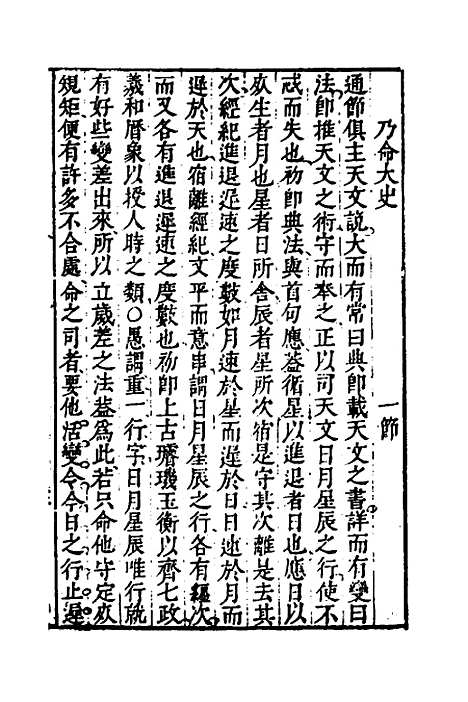 乃命大史　一節
通節俱主天文說大而有常曰典即載天文之書詳而有變曰
法即推天文之術守而奉之正以司天文日月星辰之行使不
忒而失也初即典法與首句應蓋衛星以進退者日也應日以
㱃生者月也星者日所舍辰者星所次宿是守其次離是去其
次經紀進退遲速之度數如月速於星而遲於日日速於月而
遲於天也宿離經紀文平而意串謂日月星辰之行各有經次
而又各有進退遲速之度數也初即上古璿璣玉衡以齊七政
羲和曆象以授人時之類〇愚謂重一行字日月星辰唯行就
有好些變差出來所以立歲差之法蓋為此若只命他守定㱃
規矩便有許多不合處命之司者要他活變令今日之行止遲